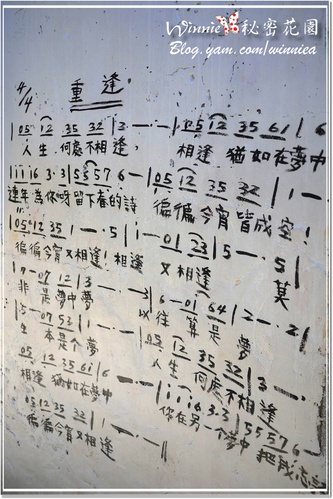 Winnie秘密花園
Blog.yam.com/winniea
4/4 重逢
|05 12 35 32|2 - - -|05 12 35 61|6
人生何處不相逢, 相逢猶如在夢中
|i i i6 3·3|5 5576 - -|05 12 35 32|1 - -
連年為你呀留下春的詩 偏偏今宵皆成空!
|05 12 35 1 - - 5|1 - 01 23|5 - - 5|
偏偏今宵又相逢!相逢 又相逢 莫
7 - 07 12|3 - - - 3|6 - 01 64|2 - - 2|
非是夢中夢 以往算是夢
5 - 07 53|1 - - -|05 12 35 32|3 - -
生本是個夢 人生何處不相逢
05 12 35 61|6 - - -|i i i6 3·3|555 76 -
相逢猶如在夢中 你在另一個夢中 把我忘
05 12 35 32|1 - - -||
偏偏今宵又相逢